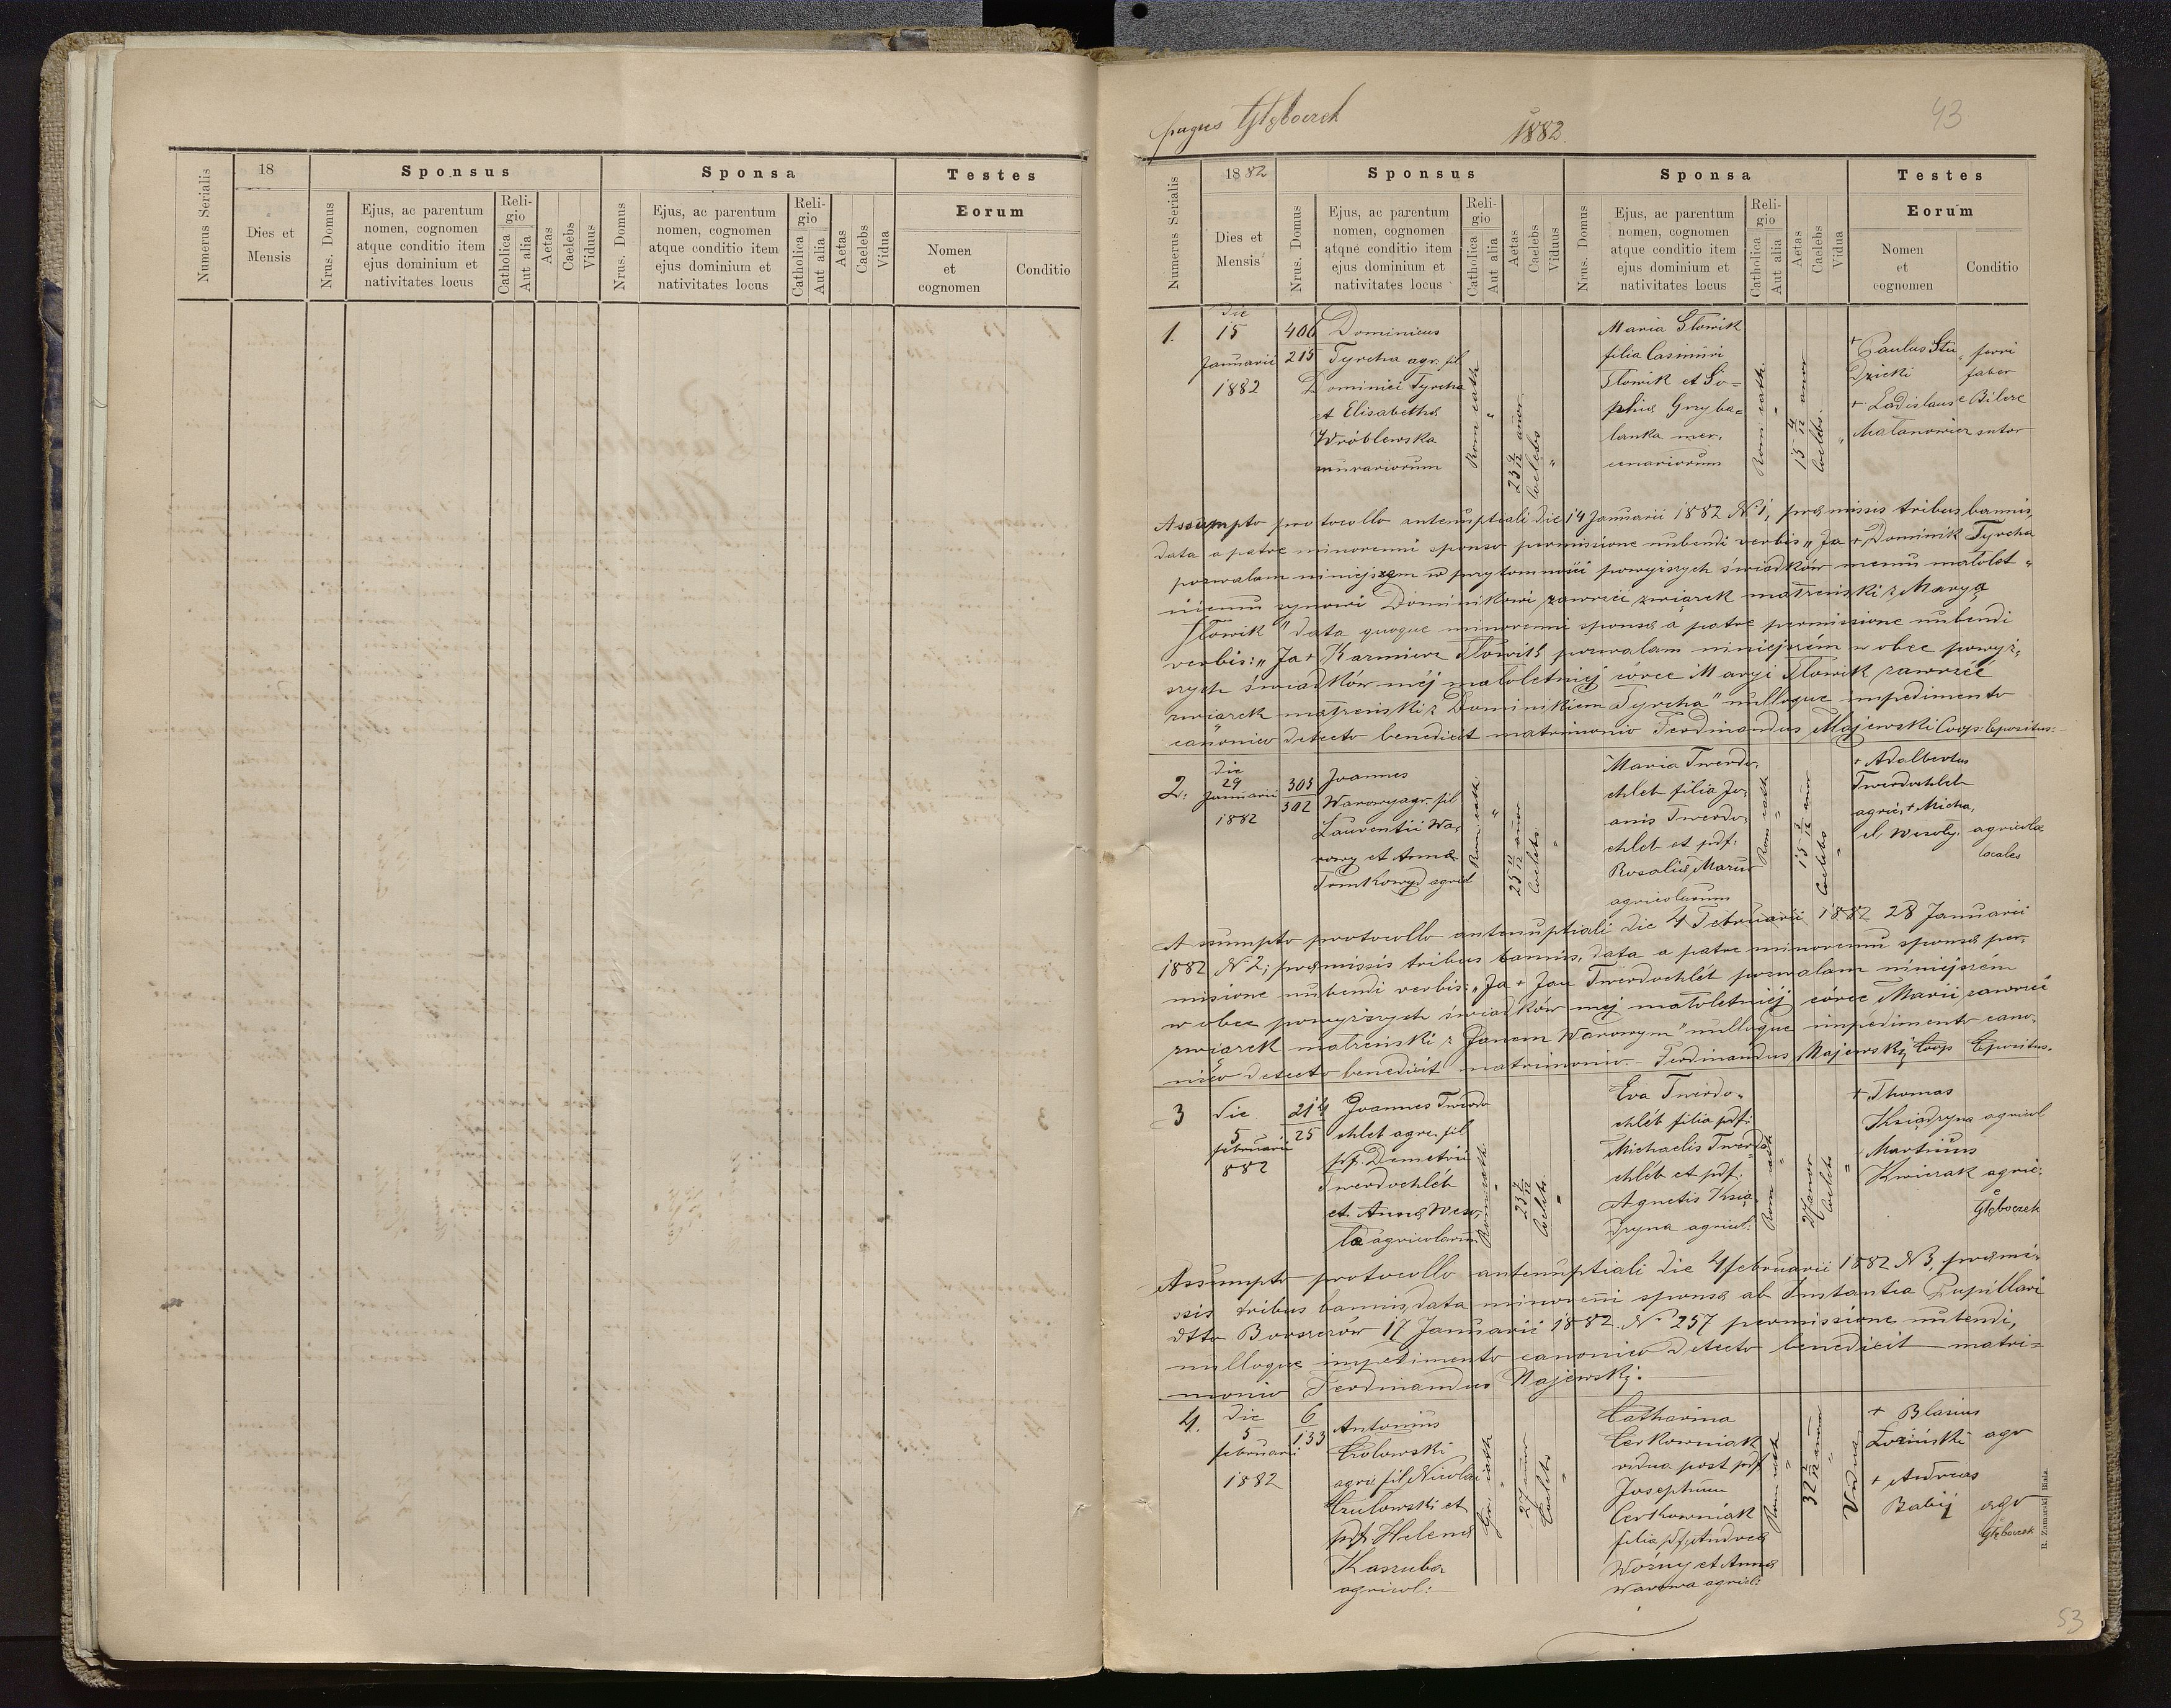 18
Sponsus
Sponsa
Testes
Numerus Serialis
Dies et
Mensis
Nrus. Domus
Ejus, ac parentum
nomen, cognomen
atque conditio item
ejus dominium et
nativitates locus
Reli-
gio
Catholica
Aut alia
Aetas
Caelebs
Viduus
Nrus. Domus
Ejus, ac parentum
nomen, cognomen
atque conditio item
ejus dominium et
nativitates locus
Reli-
gio
Catholica
Aut alia
Aetas
Caelebs
Vidua
Eorum
Nomen
et
cognomen
Conditio
pagus Głęboczek
1882
43
1882
Sponsus
Sponsa
Testes
Numerus Serialis
Dies et
Mensis
Nrus. Domus
Ejus, ac parentum
nomen, cognomen
atque conditio item
ejus dominium et
nativitates locus
Reli-
gio
Catholica
Aut alia
Aetas
Caelebs
Viduus
Nrus. Domus
Ejus, ac parentum
nomen, cognomen
atque conditio item
ejus dominium et
nativitates locus
Reli-
gio
Catholica
Aut alia
Aetas
Caelebs
Vidua
Eorum
Nomen
et
cognomen
Conditio
1.
die
15
Januarii
1882
406
215
Dominicus
Tyrcha agr. fil
Dominici Tyrcha
et Elisabethæ
Wróblewska
murariorum
Rom cath
23 9/12 anor
Coelebs
Maria Słowik
filia Casimiri
Słowik et So=
phiæ Grzyba=
lanka mer,
cenariorum
Rom. cath.
15 4/12 anor
Coelebs.
+ Paulus Stu
dzicki
ferri
faber
+ Ladislaus
Bilcze
Małanowicz sutor
Assumpto protocollo antenuptiali die 14 Januarii 1882 N 1, præmissis tribus bannis,
data a patre minorenni sponso permissione nubendi verbis „Ja + Dominik Tyrcha
pozwalam niniejszem w przytomności powyższych świadków memu małolet „
niemu synowi Dominikowi zawrzeć związek małżeński z Maryą
Słowik" data quoque minorenni sponsæ a patre permissione nubendi
verbis: „Ja + Kazmierz Słowik pozwalam niniejszém w obec powyż,
szych świadków méj małoletniej córce Maryi Słowik zawrzéć
związek małżeński z Dominikiem Tyrcha" nulloque impedimento
canonico detecto benedixit matrimonio Ferdinandus Majewski Coop: Expositus:
2.
die
29
Januarii
1882
303
302
Joannes
Warowy agr. fil
Laurentii Wa,
rowy et Annæ
Rom cath
25 11/12 anor
Coelebs.
Maria Twerdo,
chleb filia Jo,
anis Twerdo,
chleb et pdf:
Rosaliæ Mazur
agricolarum
Rom cath
Coelebs
+ Adalbertus
Twerdochleb
agric, + Micha,
el Wesoły. agricolæ
locales
Assumpto protocollo antenuptiali die 4 Februarii 1882 28 Januarii
1882 N 2; præmissis tribus bannis, data a patre minorenni sponsæ per,
misione nubendi verbis: „Ja + Jan Twerdochléb pozwalam niniejszém
w obec powyższych świadków mej małoletniéj córce Marii zawrzeć
związek małżeński z Janem Warowym" nulloque impedimento cano,
nico detecto benedixit matrimonio. Ferdinandus Majewski Coop Expositus.
3
die
5
februarii
882
214
25
Joannes Twerdo
chleb agric. fil
pf. Demetrii
Twerdochléb
et Annæ Weso,
ła agricolarum
Rom cath
23 7/12
Coelebs
Eva Twerdo „
chléb filia pdf:
Michaelis Twerdo
chléb et pdf:
Agnetis Ksią
dzyna agricol:
Rom cath
27 anor
Coelebs
+ Thomas
Ksiądzyna agricol
Martinus
Kwiczak agric:
Głęboczek
Assumpto protocollo antenuptiali die 4 februarii 1882 N 3, præmi=
ssis tribus bannis, data minorenni sponsæ ab Instantia Pupillari
dtto Borszczów 17 Januarii 1882 N 257 permissione nubendi,
nulloque impedimento canonico detecto benedixit matri=
monio Ferdinandus Majewski.
4.
die
5
februarii
1882
6
133
Antonius
agric fil Nicolai
Czulowski et
pdf Helenæ
Kaszuba
agricol:
Gr. cath
27 anor
Coelebs
Catharina
Cerkowniak
vidua post pdf
Josephum
Cerkowniak
filia pf. Andreæ
Woźny et Annæ
Warowa agricol:
Rom cath
Vidua
+ Blasius
Łoziński agr
+ Andreas
Babij agr
Głęboczek
R. Zamarski, Biała.
53